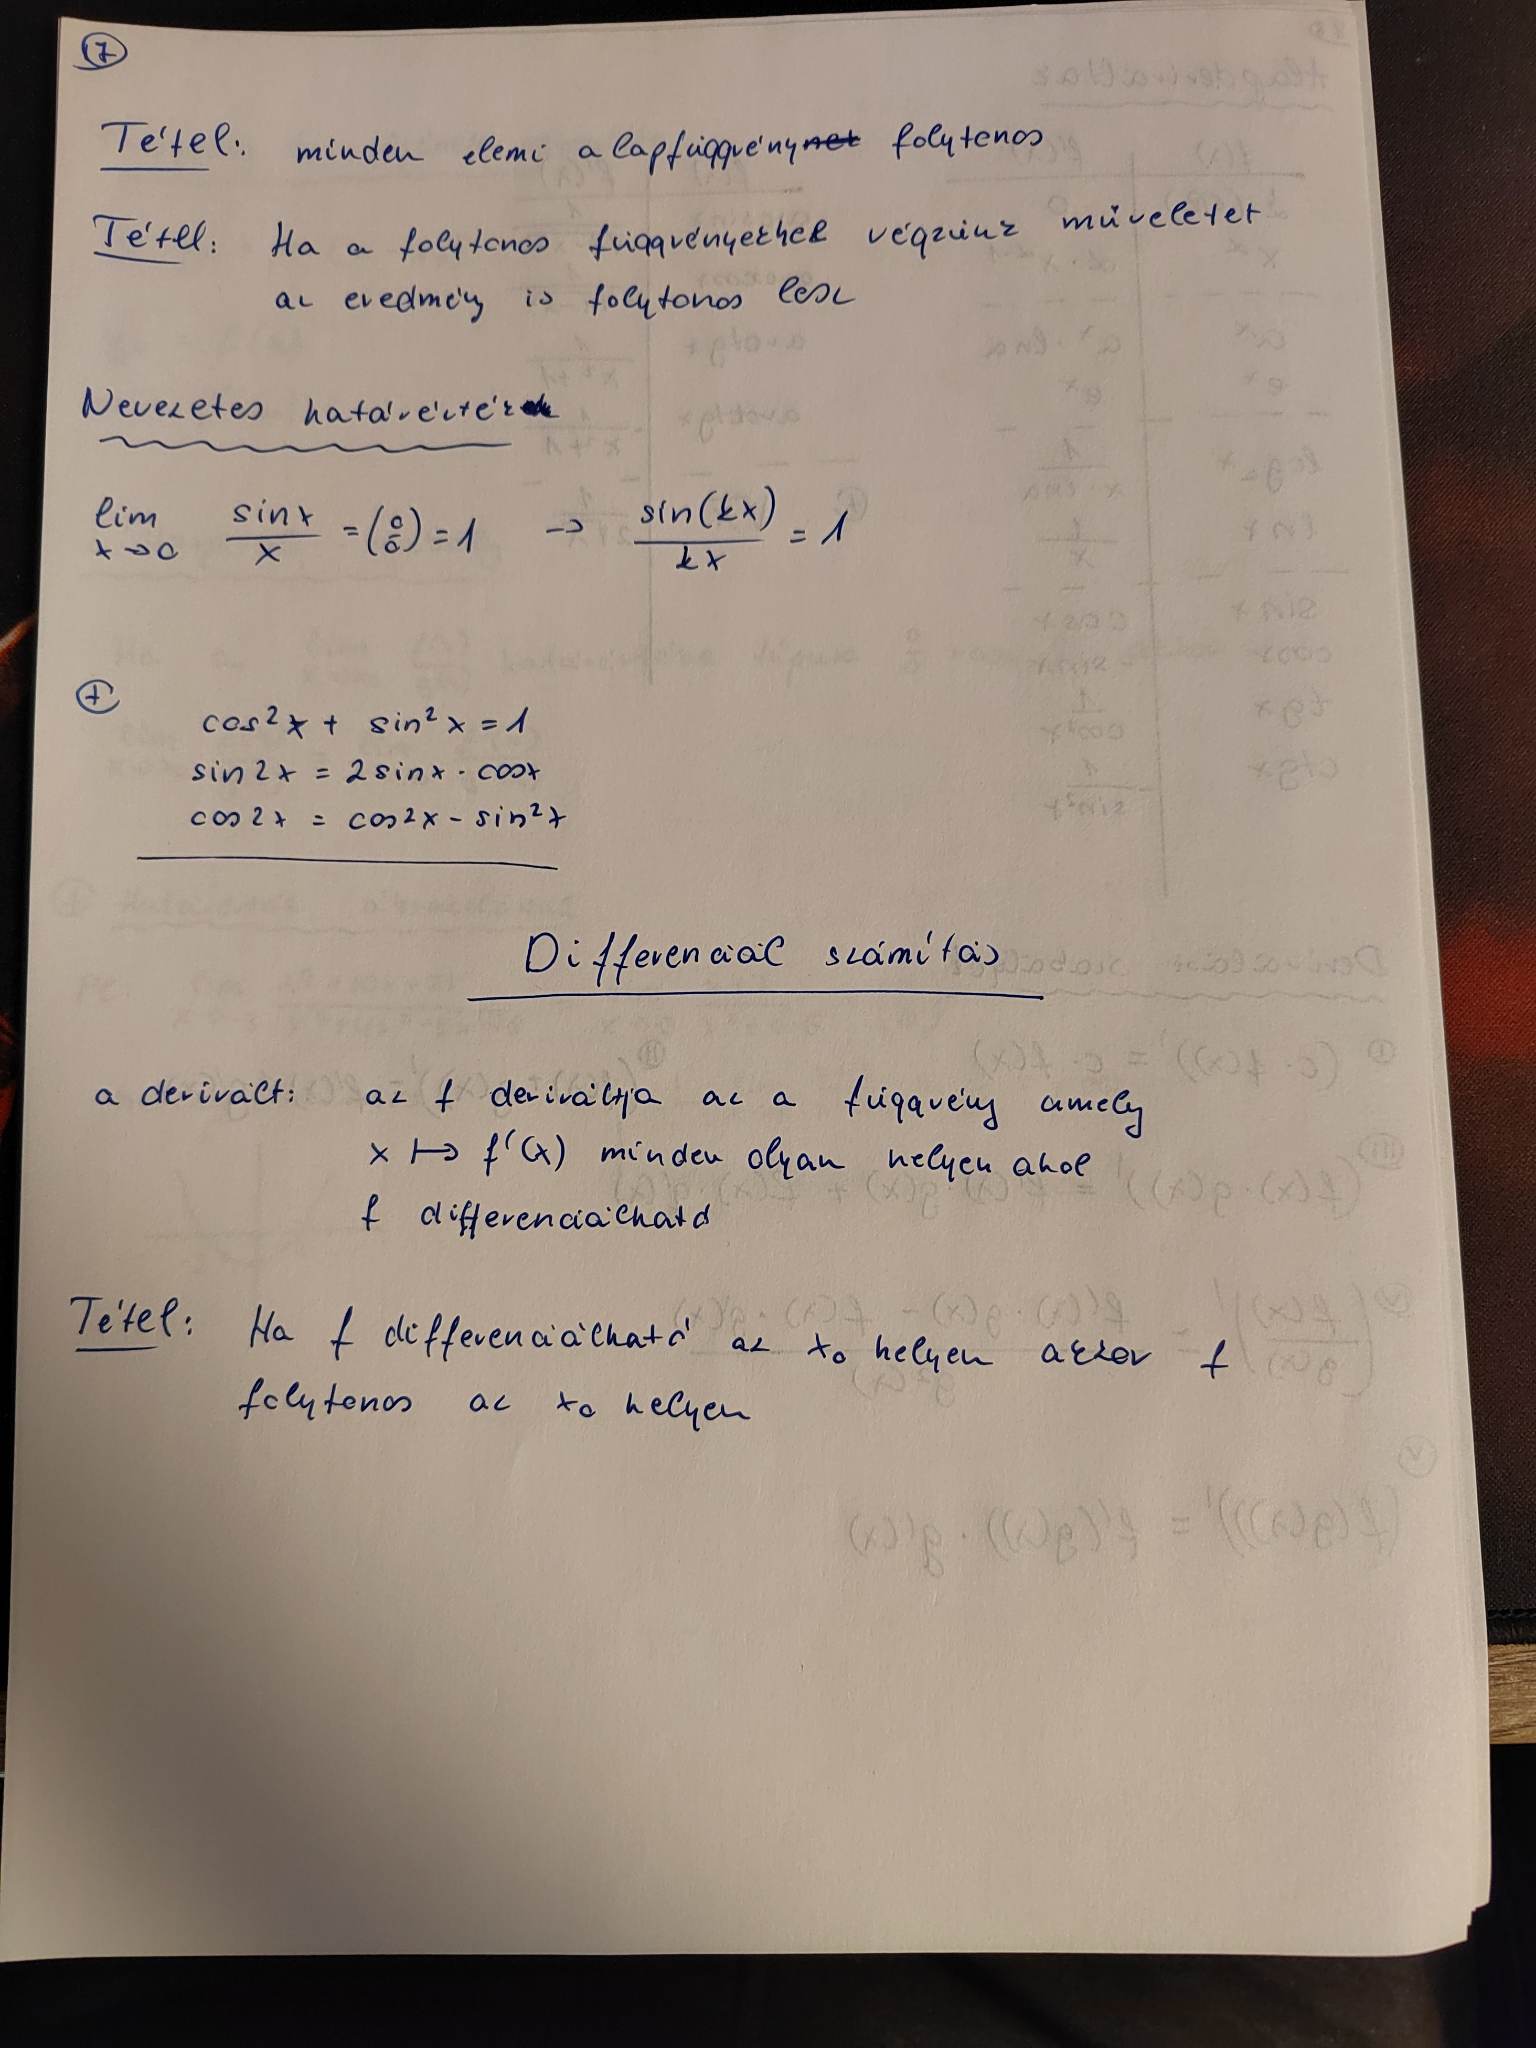 7
Tétel: minden elemi alapfüggvény folytonos
Tétel: Ha a folytonos függvényekkel végzünk műveletet
az eredmény is folytonos lesz
Nevezetes határérték
lim x→0 sinx/x = (0/0) = 1 → sin(kx)/kx = 1
+
cos²x + sin²x = 1
sin2x = 2sinx · cosx
cos2x = cos2x - sin²x
Differenciál számítás
a derivált: az f deriváltja az a függvény amely
x ↦ f'(x) minden olyan helyen ahol
f differenciálható
Tétel: Ha f differenciálható az x₀ helyen akkor f
folytonos az x₀ helyen